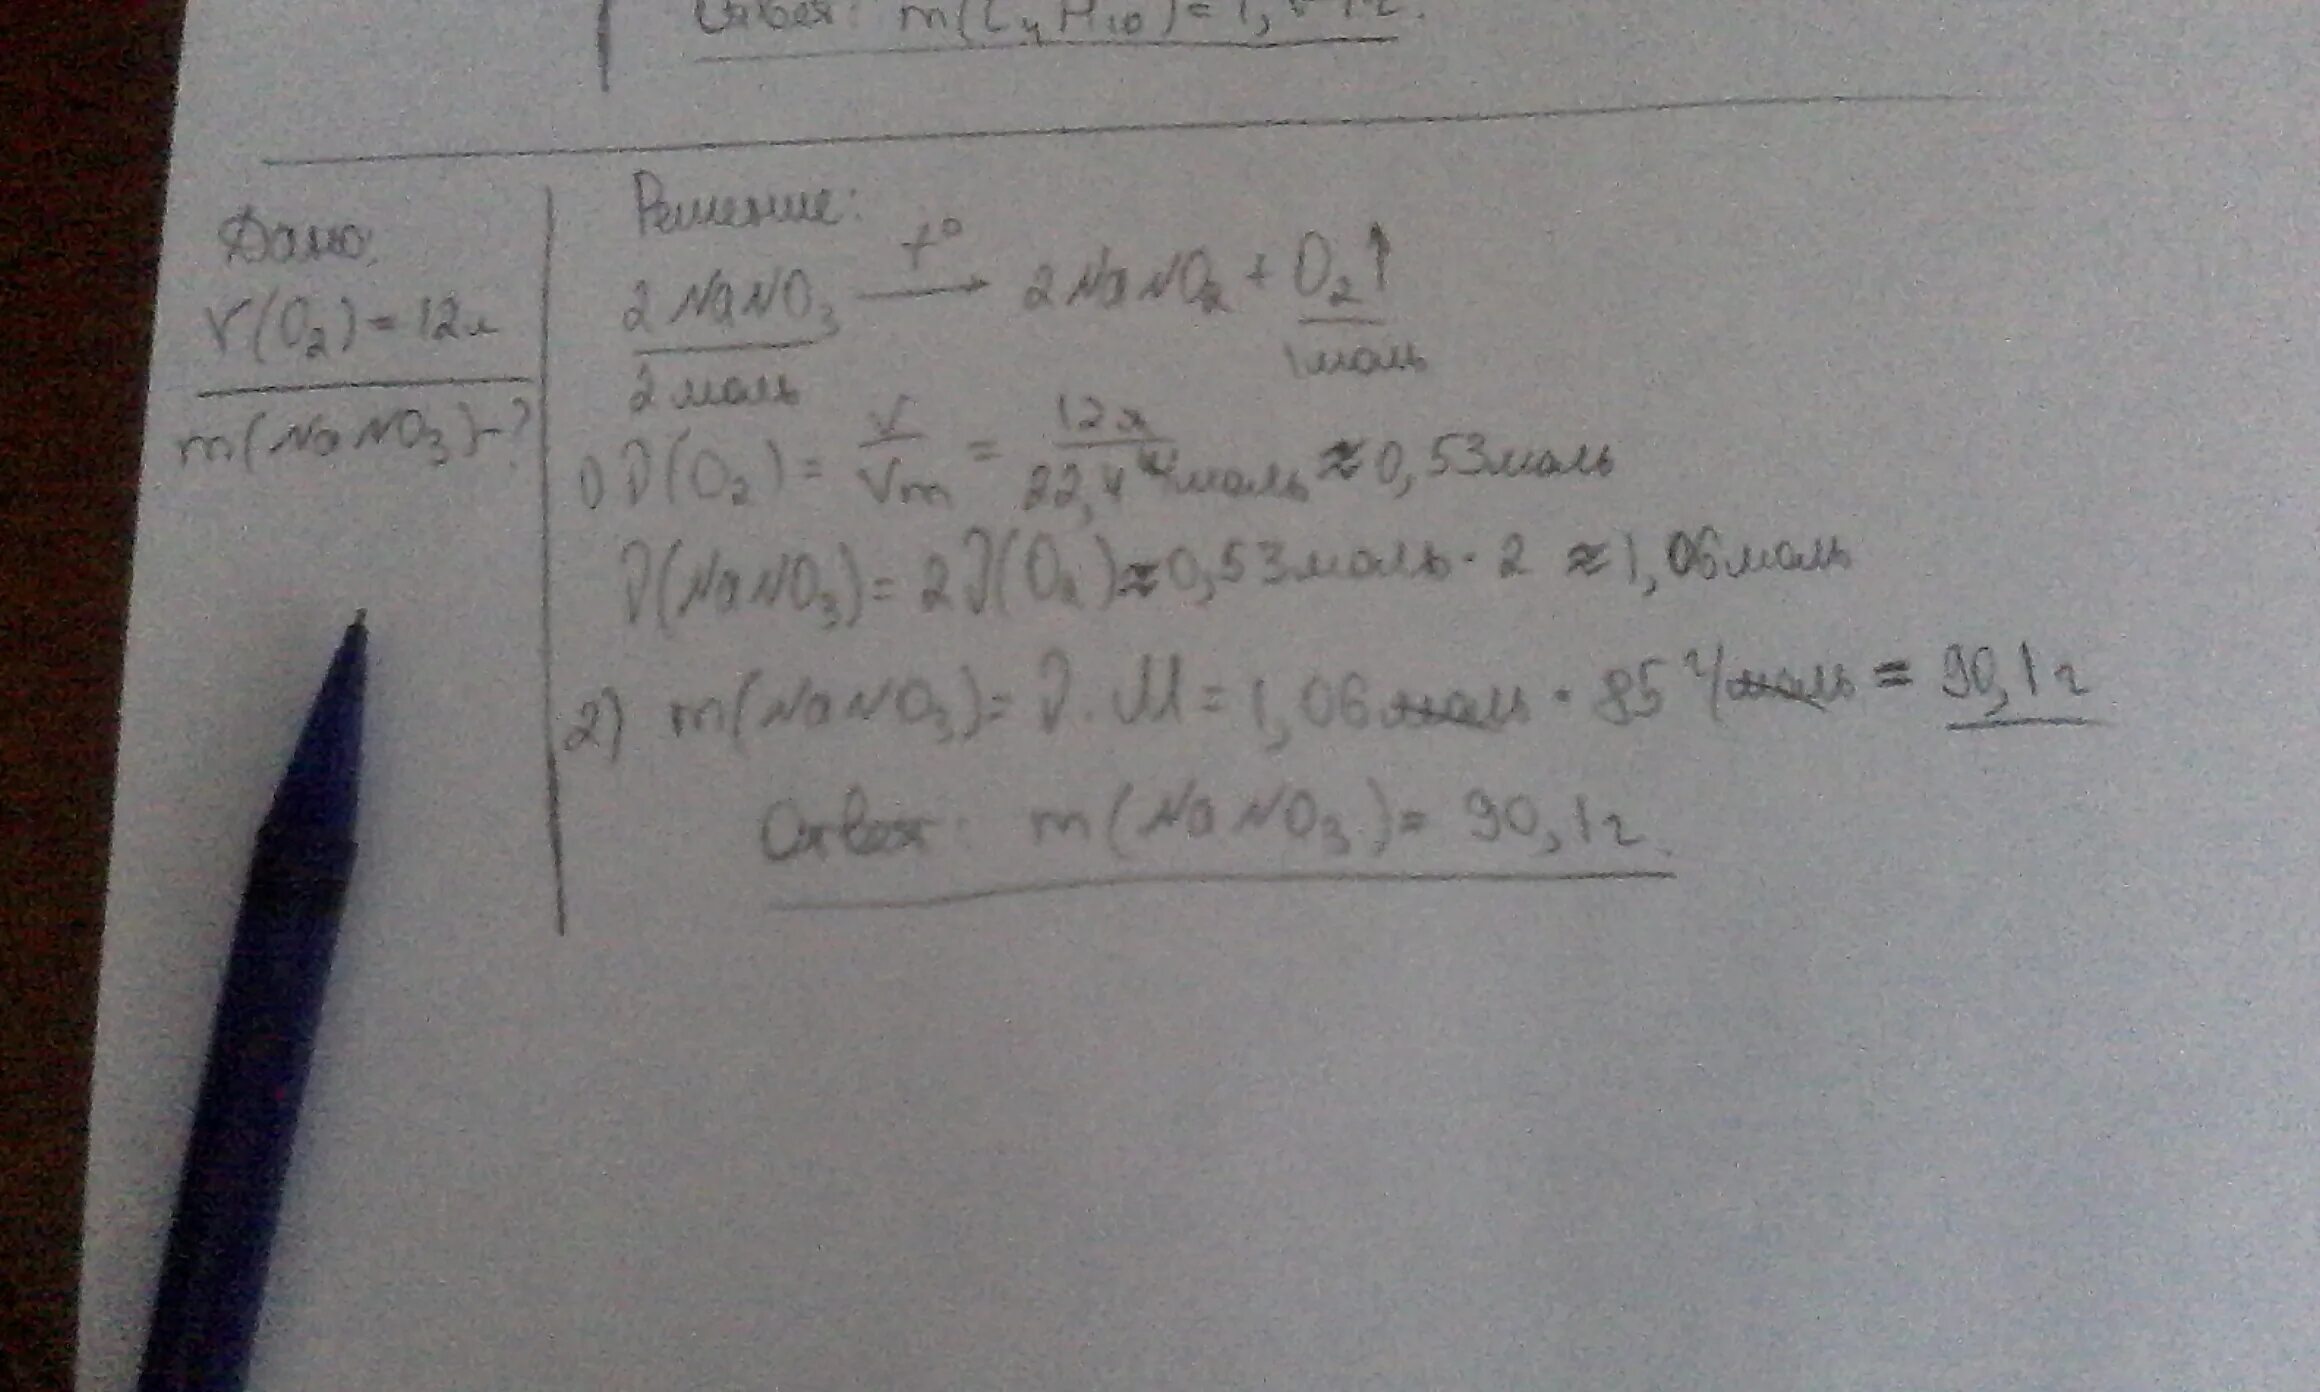 Ответ: m(C₄H₁₀) = 1,
Дано:
V(O₂) = 12 л
m(NaNO₃) - ?
Решение:
2 NaNO₃ →(t°) 2 NaNO₂ + O₂↑
2 моль 1 моль
1) ν(O₂) = V/Vm = 12 л / 22,4 л/моль ≈ 0,53 моль
ν(NaNO₃) = 2ν(O₂) ≈ 0,53 моль · 2 ≈ 1,06 моль
2) m(NaNO₃) = ν · M = 1,06 моль · 85 г/моль = 90,1 г
Ответ: m(NaNO₃) = 90,1 г.